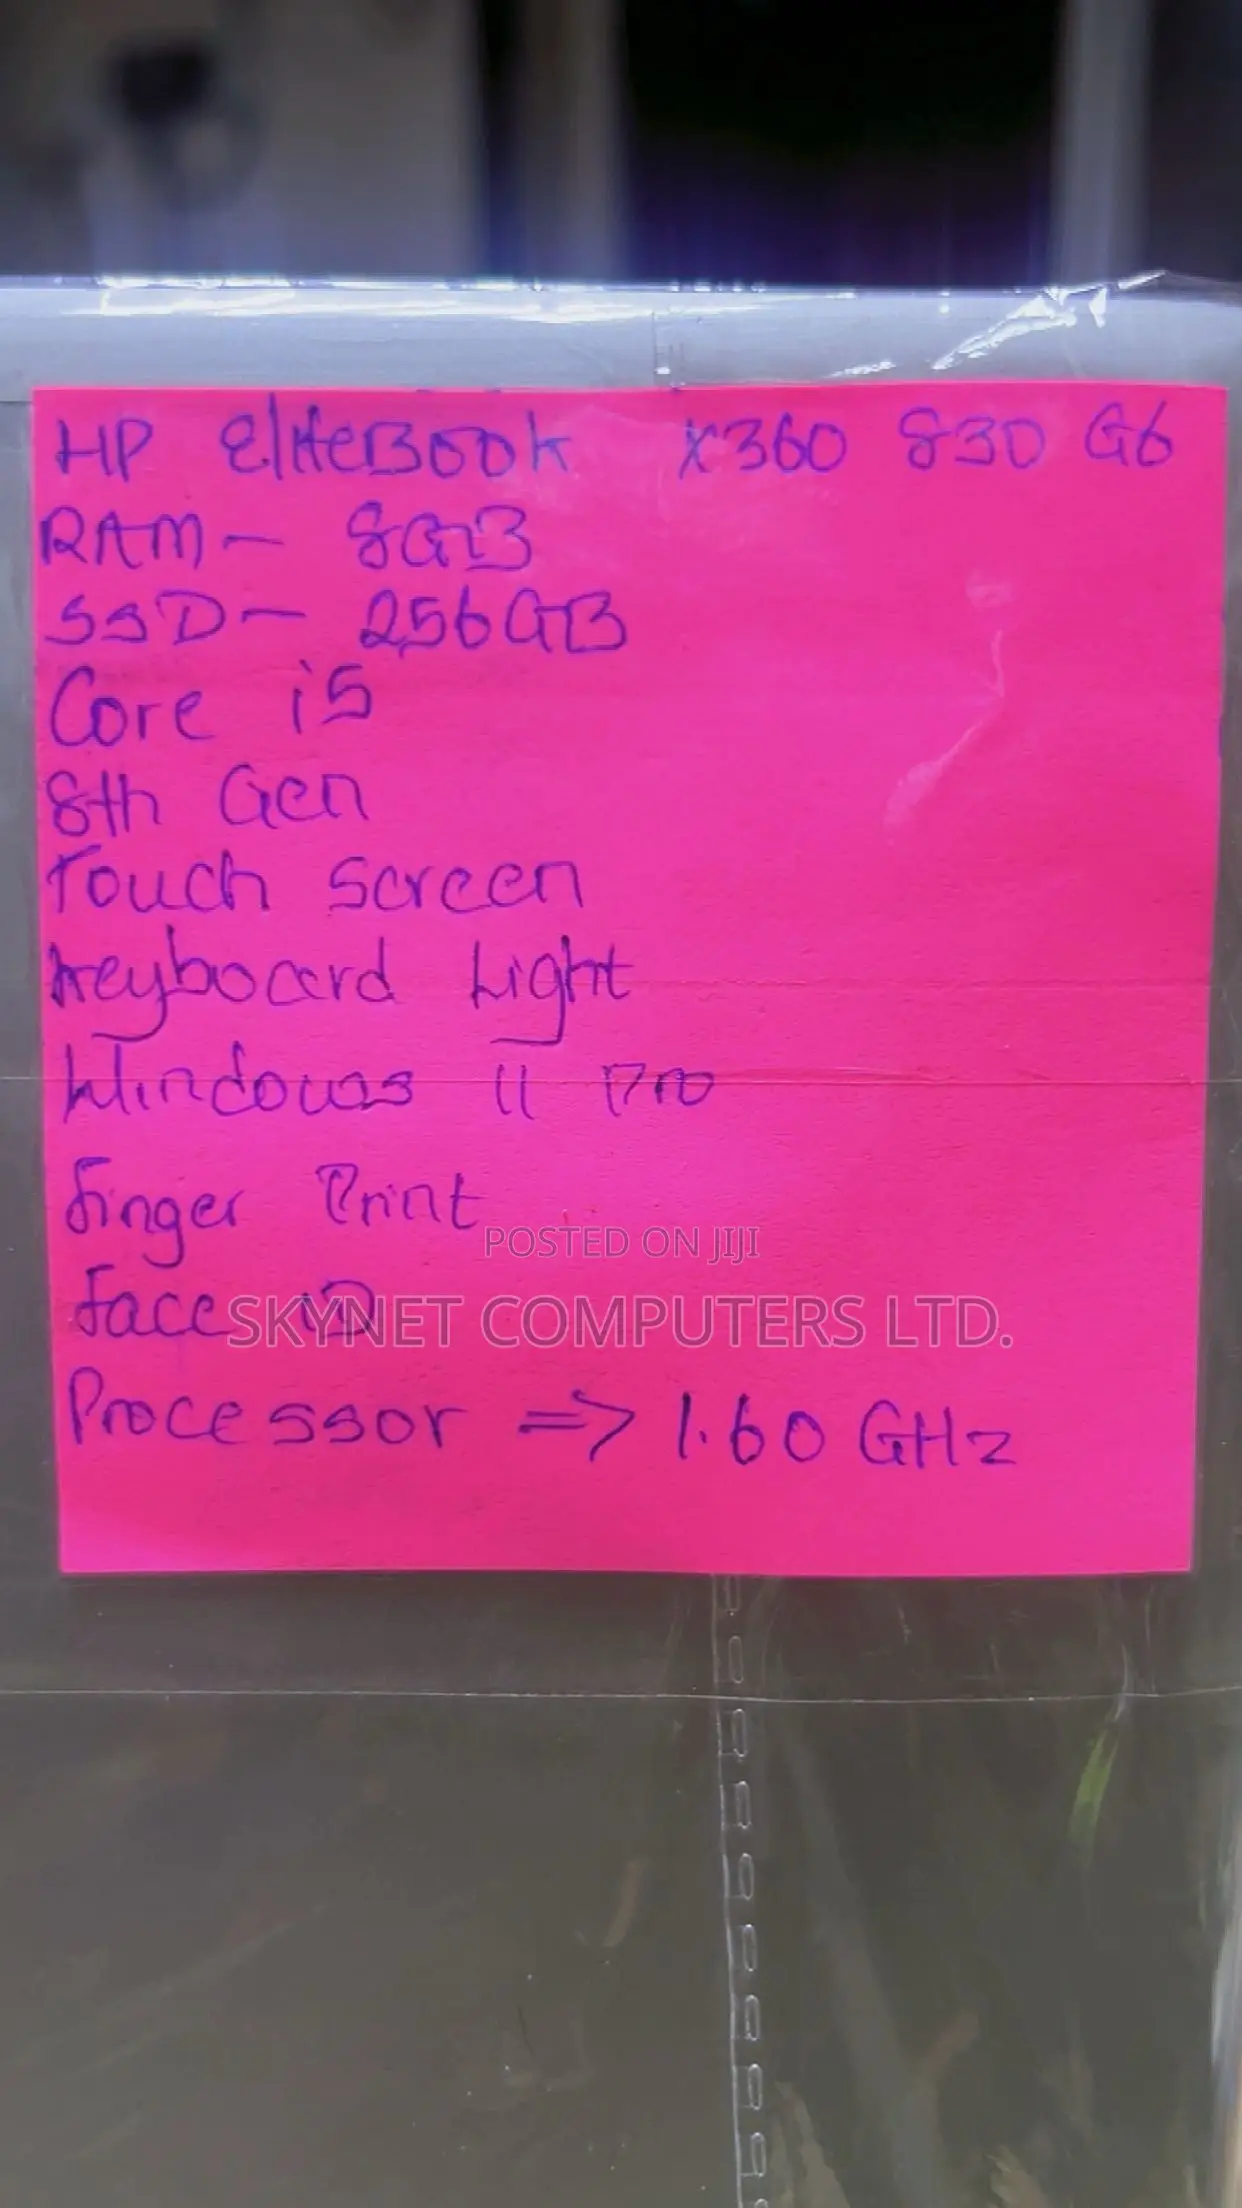 HP EliteBook x360 830 G6
RAM - 8GB
SSD - 256GB
Core i5
8th Gen
Touch screen
Keyboard Light
Windows 11 Pro
Finger Print
POSTED ON JIJI
Face ID
SKYNET COMPUTERS LTD.
Processor => 1.60 GHz